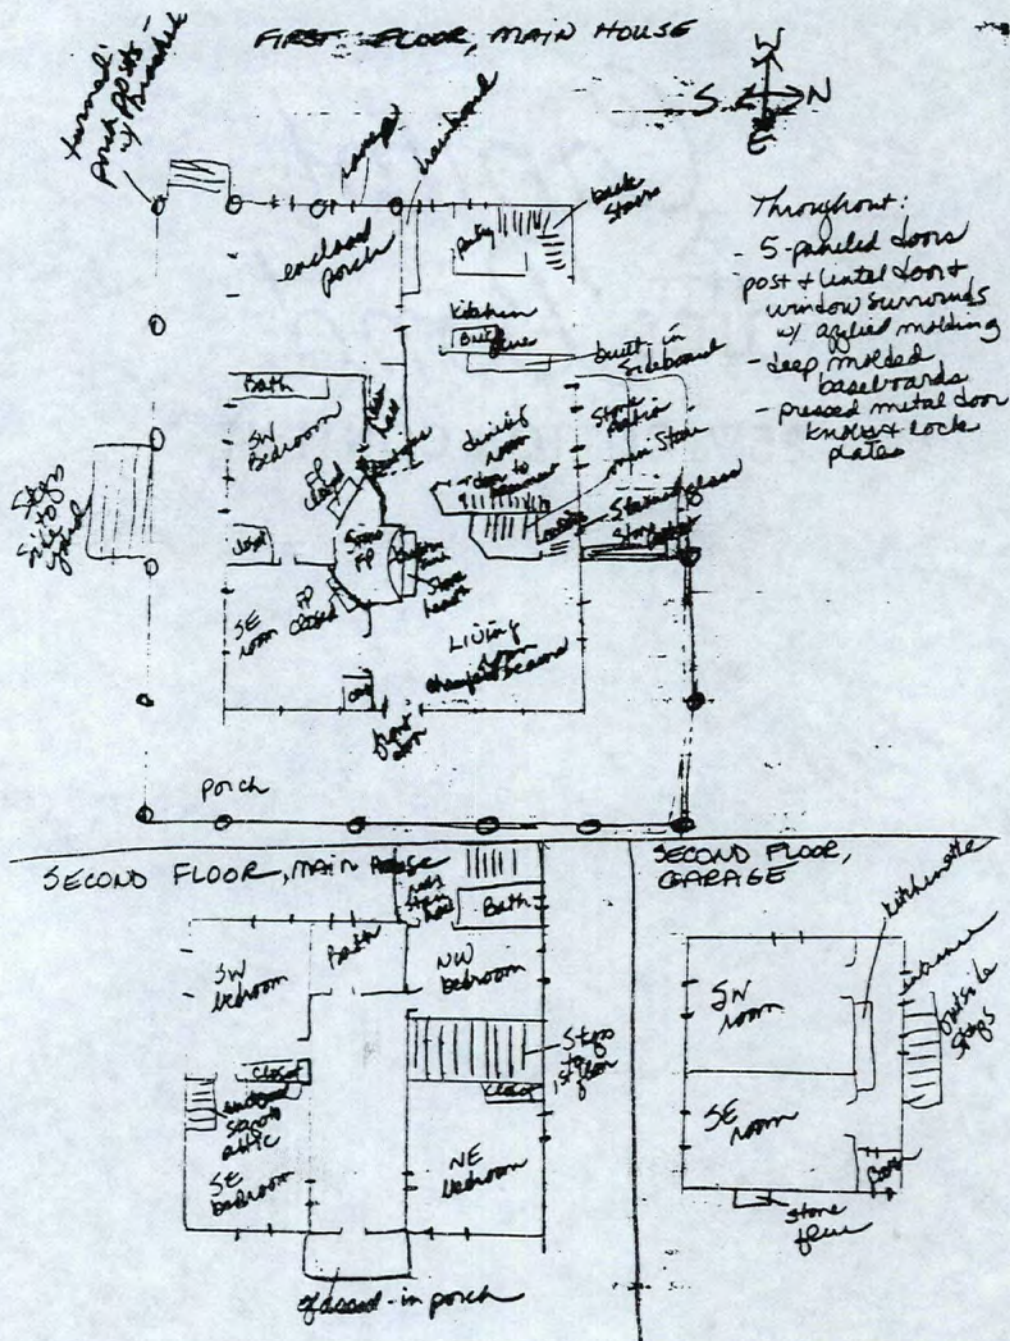 FIRST FLOOR, MAIN HOUSE
W
S
N
E
turned
porch posts
w/
back
stairs
enclosed
porch
pantry
Throughout:
- 5-paneled doors
post + lintel door +
window surrounds
w/ applied molding
- deep molded
baseboards
- pressed metal door
knobs + lock
plates
Kitchen
flue
built-in
sideboard
Bath
SW
Bedroom
dining
room
Stone
patio
main stair
down to
basement
FP
closed
Steps
Stained glass
closet
Stone
FP
Stone
hearth
FP
closed
SE
room
LIVING
room
front
door
porch
SECOND FLOOR, MAIN HOUSE
Bath
SW
bedroom
Bath
NW
bedroom
Steps
to
1st floor
closet
closet
attic
SE
bedroom
NE
bedroom
glassed-in porch
SECOND FLOOR,
GARAGE
kitchenette
entrance
outside
steps
SW
room
SE
room
stone
flue